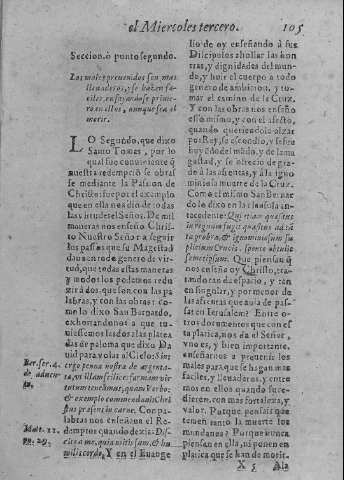 el Miercoles tercero. 105
Seccion, ò punto segundo.
Los males prevenidos son mas
llevaderos, y se hazen fa-
ciles, ensayandose prime-
ro en ellos, aunque sea el
morir.
LO Segundo, que dixo
Santo Tomas, por lo
qual fue conviniente q̃
nuestra redempciõ se obras
se mediante la Passion de
Christo: fue por el exemplo
que en ella nos diò de todas
las virtudes el Señor. De mil
maneras nos enseño Chris-
to Nuestro Señor a seguir
los passos que su Magestad
dava en todo genero de vir-
tud, que todas estas maneras
y modos los podemos redu-
zir à dos, que son con las pa
labras, y con las obras: co-
mo lo dixo San Bernardo,
exhortandonos a que tu-
viessemos las dos alas platea
das de paloma que dixo Da
uid para volar al Cielo: Sint
ergo penna nostra de argenta-
ta, ut illam scilicet famam vir
tutum teneamus, quam Verbo;
& exemplo commendauit Chris
tus præsens in carne. Con pa-
labras nos enseñava el Re-
demptor quando dezia: Dis-
cite a me, quia mitis sum, & hu
milis corde. Y en el Euange
Ber. ser. 4.
de aduen-
tu.
Matt. 11.
nu. 29.
lio de oy enseñando à sus
Discipulos à hollar las hon
ras, y dignidades del mun-
do, y huir el cuerpo a todo
genero de ambicion, y to-
mar el camino de la Cruz.
Y con las obras nos enseñò
esso mismo, y con el afecto,
quando queriendole alzar
por Rey, se escondio, y se fue
huyẽdo del mũdo, y de la ma
gestad, y se ofrecio de gra-
do à las afrentas, y à la igno
miniosa muerte de la Cruz.
Como el mismo San Bernar
do lo dixo en la clausula an-
tecedente: Qui etiam quæsitus
in regnum fugit quæsitus ad tã
ta probra, & ignominiosum su
plicium Crucis, sponte obtulit
semetipsum. Que piensan q̃
nos enseñò oy Christo, tra-
tando tan de espacio, y tan
en singular, y por menor de
las afrentas que avia de pas-
sar en Ierusalem? Entre o-
tros documentos que con es
ta platica, nos dà el Señor,
vno es, y bien importante,
enseñarnos a prevenir los
males para que se hagan mas
faciles, y llevaderos, y entre
mos en ellos quando suce-
dieren, con mas fortaleza, y
valor. Porque pensais que
temen tanto la muerte los
mundanos? Porque nunca
piensan en ella, ni ponen en
platica que se han de morir.
X 5 Ala